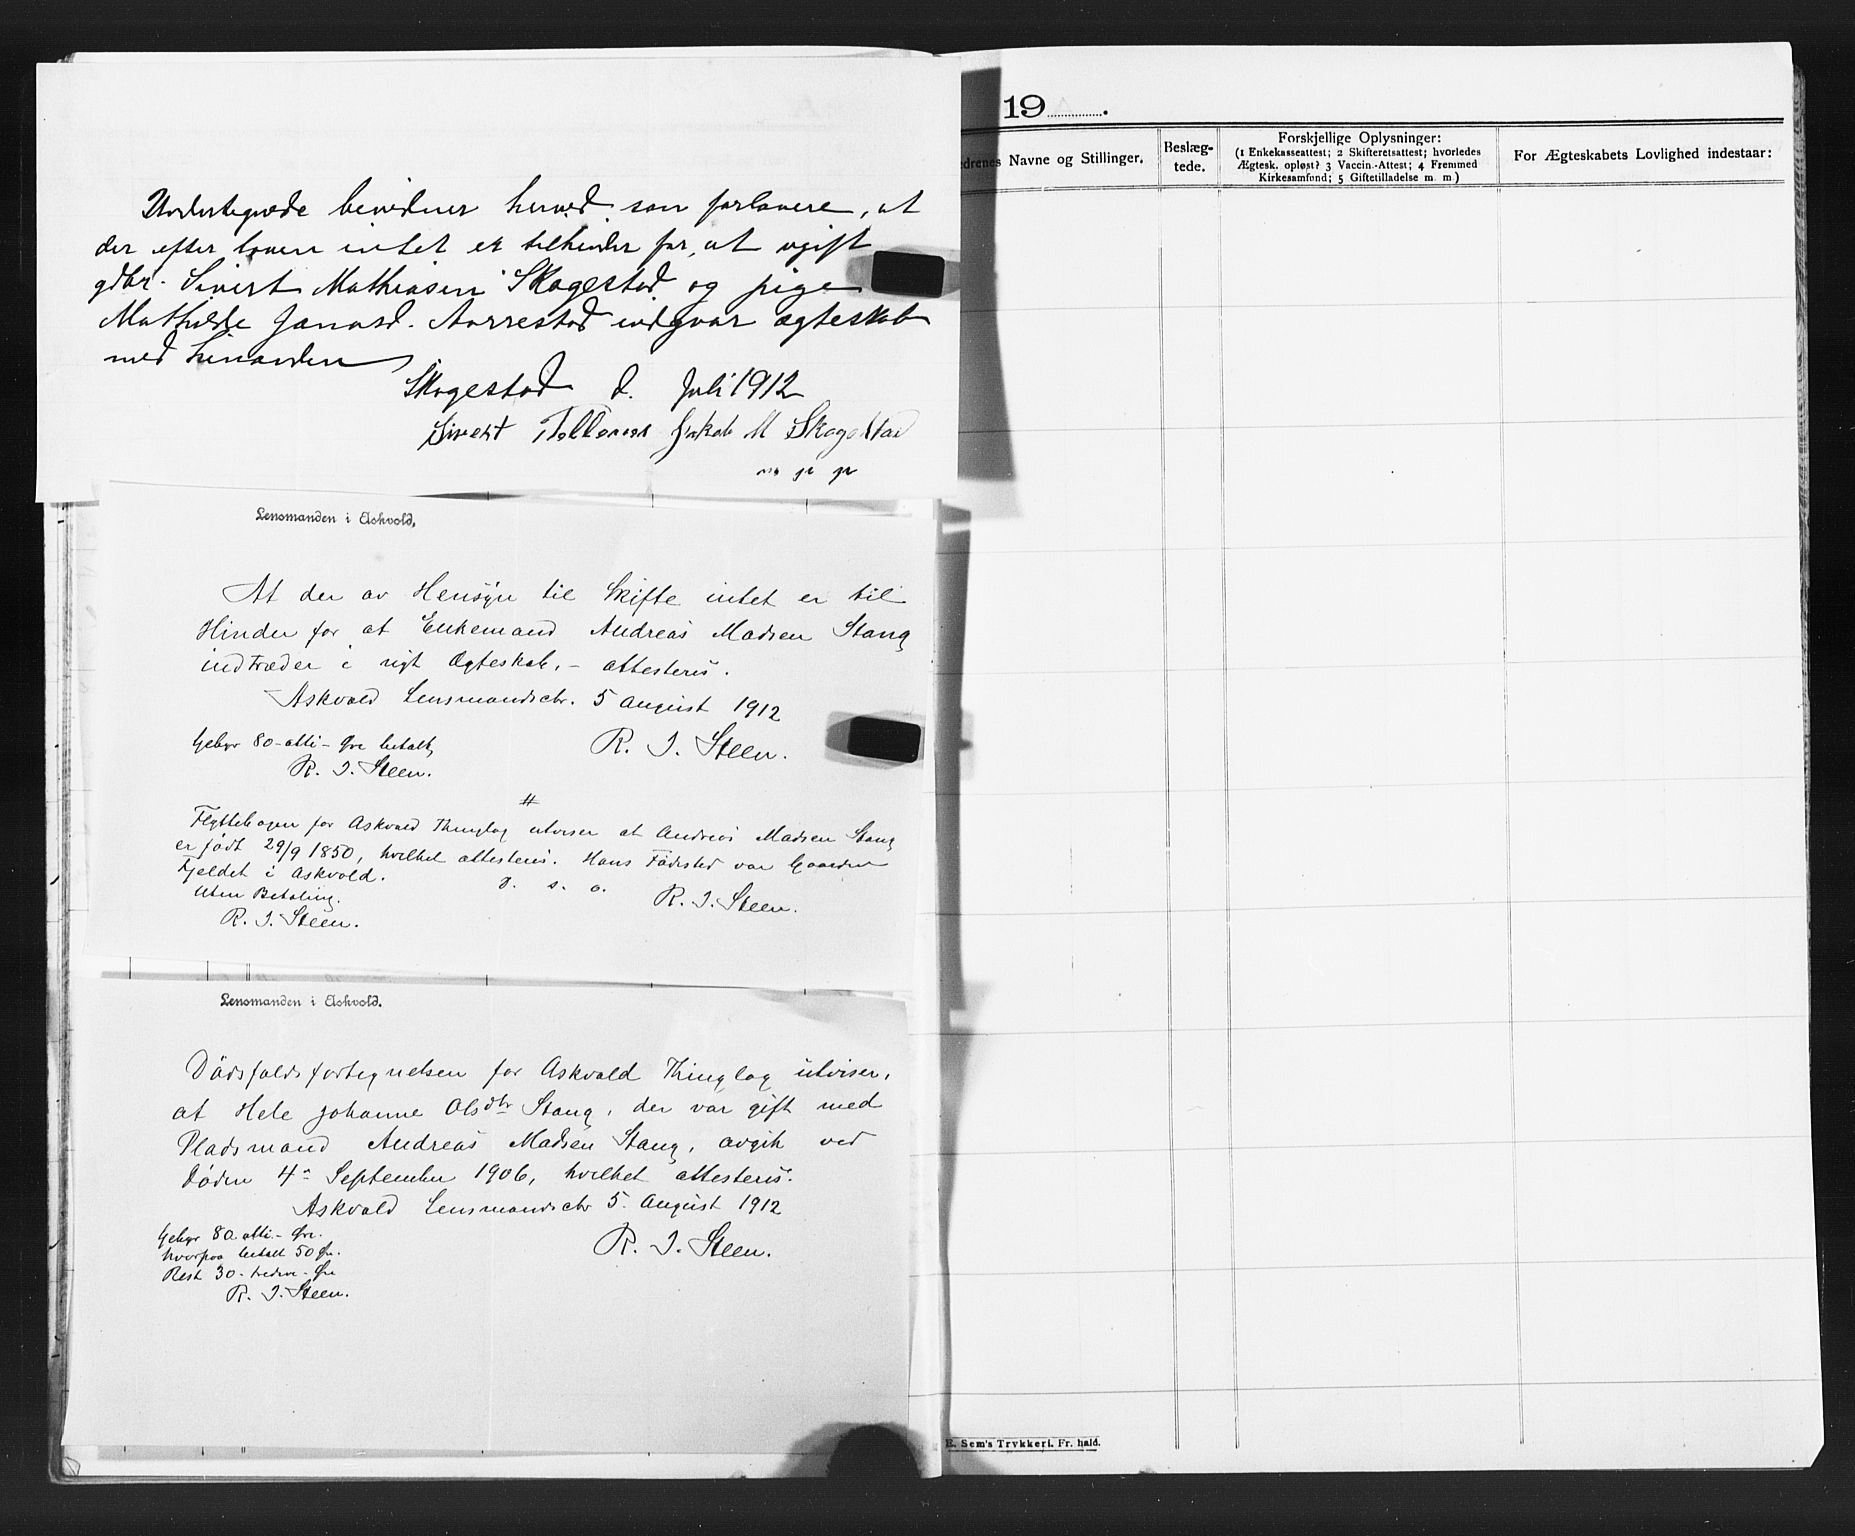 Undertegnede bevidner herved som forlovere, at
der efter loven intet er tilhinder for, at ugift
gdbr. Sivert Mathiasen Skogestad og pige
Mathilde Jonasd. Aarrestad indgaar ægteskab
med hinanden
Skogestad d. Juli 1912
Sivert Tollevsen Jakob M Skogestad
Lensmanden i Askvold.
At der av Hensyn til Skifte intet er til
Hinder for at Enkemand Andreas Madsen Stang
indtræder i nyt Ægteskab, - attesteres.
Askvold Lensmandsctr. 5 August 1912
R. J. Steen.
Gebyr 80 - otti - Øre betalt,
R. J. Steen.
#
Flyttebogen for Askvold Thinglag utviser at Andreas Madsen Stang
er født 29/9 1850, hvilket attesteres. Hans Fødested var Gaarden
Fjeldet i Askvold.
D. s. o.
Uten Betaling.
R. J. Steen.
R. J. Steen.
Lensmanden i Askvold.
Dødsfaldsfortegnelsen for Askvold Thinglag utviser,
at Hele Johanne Olsdtr Stang, der var gift med
Pladsmand Andreas Madsen Stang, avgik ved
Døden 4de September 1906, hvilket attesteres.
Askvold Lensmandsctr 5. August 1912
R. J. Steen.
Gebyr 80 otti - Øre.
hvorpaa betalt 50 Øre.
Rest 30 - tredve - Øre
R. J. Steen.
19 .
edrenes Navne og Stillinger.
Beslæg-
tede.
Forskjellige Oplysninger:
(1 Enkekasseattest; 2 Skifteretsattest; hvorledes
Ægtesk. opløst? 3 Vaccin.-Attest; 4 Fremmed
Kirkesamfund; 5 Giftetilladelse m. m.)
For Ægteskabets Lovlighed indestaar:
E. Sem's Trykkeri. Fr. hald.